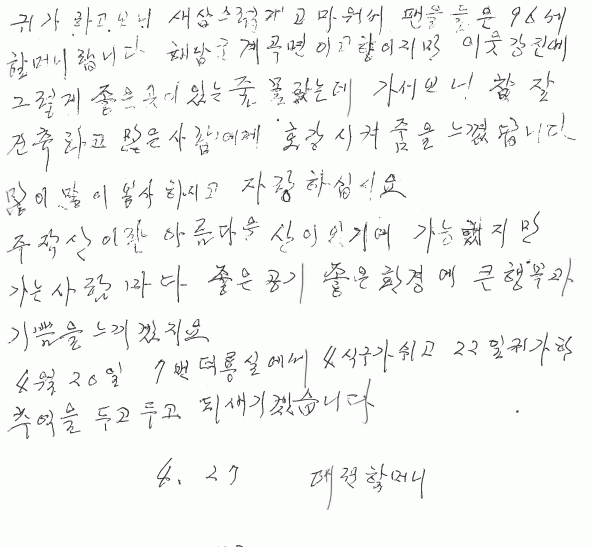 귀가 하고보니 새삼스럽게 고마워서 팬을 들은 96세
할머니랍니다 해남군 계곡면이 고향이지만 이웃강진에
그렇게 좋은곳이 있는줄 몰랐는데 가서보니 참 잘
건축하고 많은사람에게 호강시켜줌을 느꼈답니다
많이많이 봉사하시고 자랑하십시요
주작산이란 아름다운 산이있기에 가능했지만
가는사람마다 좋은공기 좋은환경에 큰행복과
기쁨을 느끼겠지요
4월 20일 7번덕룡실에서 4식구가쉬고 22일귀가하
추억을 두고두고 되새기겠습니다
4. 27 대전할머니